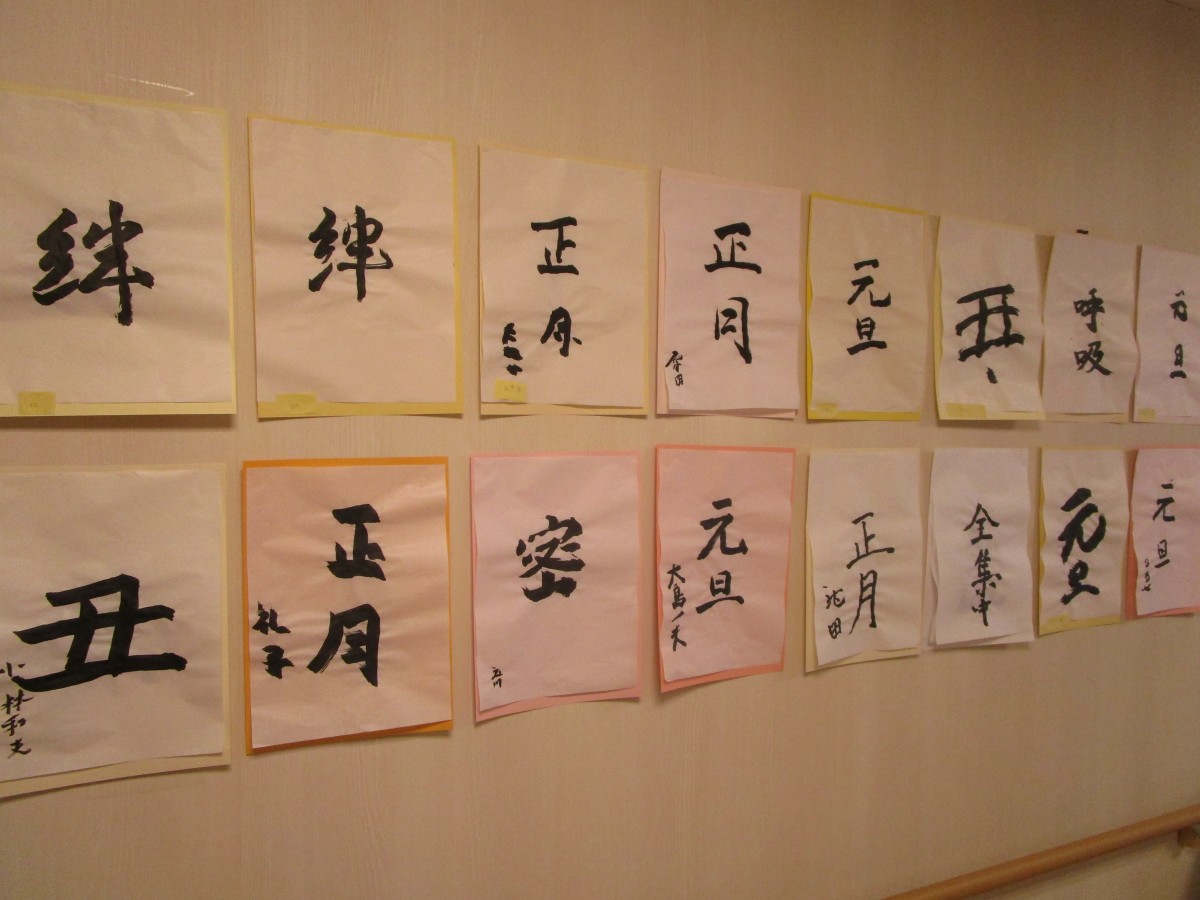 絆
絆
正月
正月
元旦
丑
呼吸
元旦
丑
小林和文
正月
礼子
密
元旦
正月
全集中
元旦
元旦